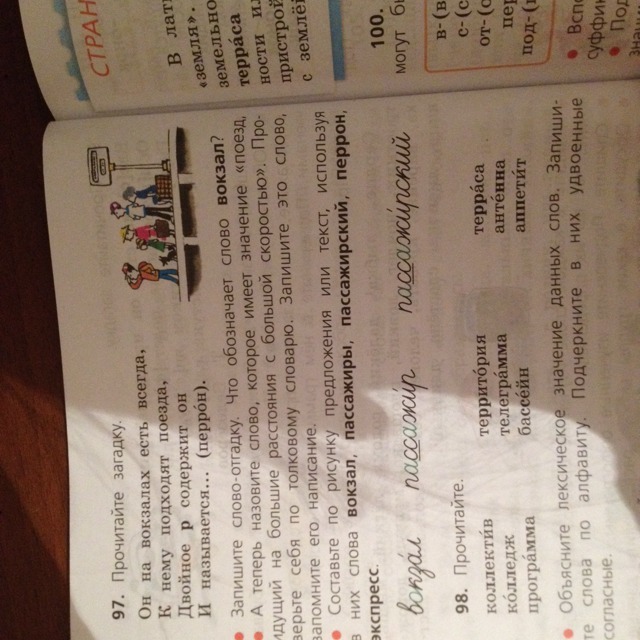 97. Прочитайте загадку.
Он на вокзалах есть всегда,
К нему подходят поезда,
Двойное р содержит он
И называется... (перро́н).
● Запишите слово-отгадку. Что обозначает слово вокзал?
● А теперь назовите слово, которое имеет значение «поезд,
идущий на большие расстояния с большой скоростью». Про-
верьте себя по толковому словарю. Запишите это слово,
запомните его написание.
● Составьте по рисунку предложения или текст, используя
в них слова вокзал, пассажиры, пассажирский, перрон,
экспресс.
вокза́л пассажи́р пассажи́рский
98. Прочитайте.
коллекти́в террито́рия терра́са
ко́лледж телегра́мма анте́нна
програ́мма бассе́йн аппети́т
● Объясните лексическое значение данных слов. Запиши-
те слова по алфавиту. Подчеркните в них удвоенные
согласные.
СТРАН
В лати
«земля».
земельно
терра́са
ности и
пристрой
с землё
100.
могут бы
в-(в
с-(с
от-(о
пер
под-(
● Вспо
суффи
● Под